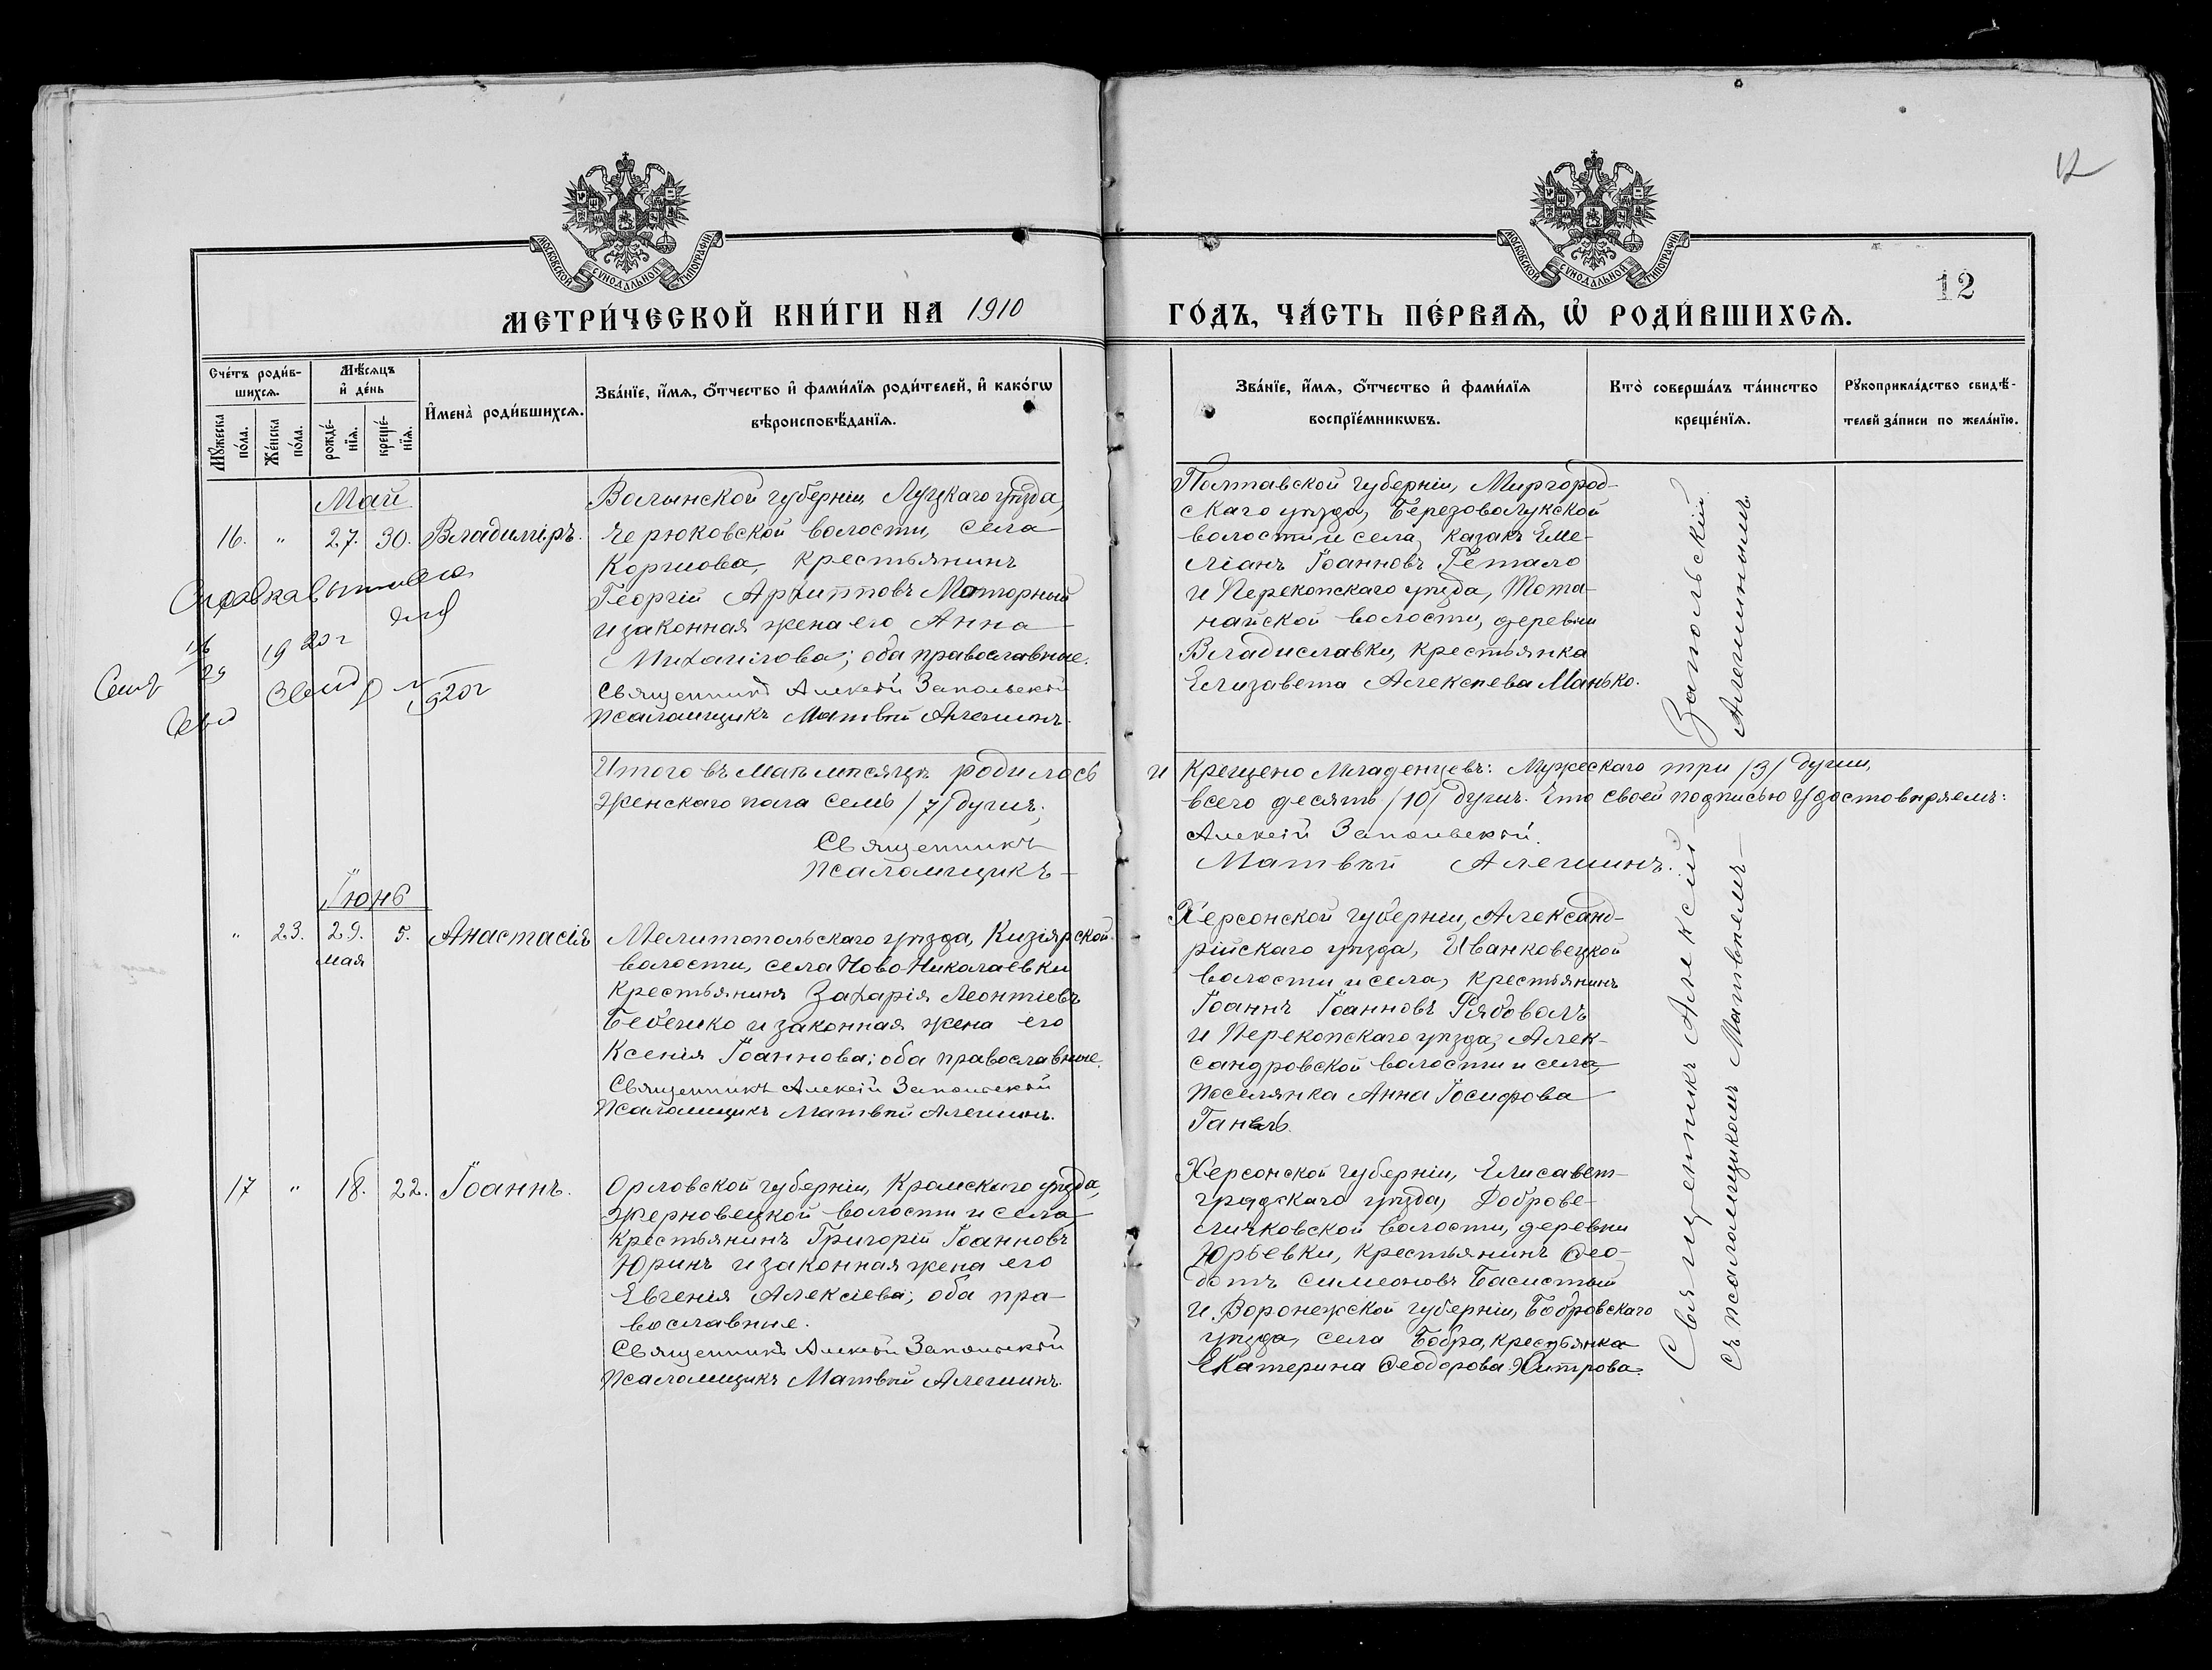 12
МОСКОВСКОЙ СУНОДАЛЬНОЙ ТИПОГРАФІИ
МОСКОВСКОЙ СУНОДАЛЬНОЙ ТИПОГРАФІИ
12
МЕТРИ́ЧЕСКОЙ КНИ́ГИ НА 1910
ГО́ДЪ, ЧА́СТЬ ПЕ́РВАѦ, Ѿ РОДИ́ВШИХСѦ.
Сче́тъ роди́в-
шихсѧ.
Мꙋ́жеска
по́ла.
Же́нска
по́ла.
Мѣ́сѧцъ
и҆ де́нь
рожде́-
нїѧ.
креще́-
нїѧ.
И҆мена̀ роди́вшихсѧ.
Зва́нїе, и҆́мѧ, ѻ҆́тчество и҆ фами́лїѧ роди́телей, и҆ како́гѡ
вѣроисповѣ́данїѧ.
Зва́нїе, и҆́мѧ, ѻ҆́тчество и҆ фами́лїѧ
воспрїе́мникѡвъ.
Кто̀ соверша́лъ та́инство
креще́нїѧ.
Рꙋкоприкла́дство свидѣ́-
телей за́писи по жела́нїю.
Май
16. " 27. 30. Владиміръ.
Волынской губерніи, Луцкаго уѣзда,
Черюковской волости, села
Коршова, крестьянинъ
Георгій Архипповъ Моторный
и законная жена его Анна
Михаилова; оба православные.
Священникъ Алексій Запольскій
Псаломщикъ Матвѣй Алешинъ.
Справка
19 20 г
1920 г
Полтавской губерніи, Миргород-
скаго уѣзда, Березоволукской
волости, и села, казакъ Еме-
ліанъ Іоанновъ Гетало
и Перекопскаго уѣзда, Тота-
найской волости, деревни
Владиславки, крестьянка
Елизавета Алексѣева Манько.
Итого въ Маѣ мѣсяцѣ родилось
Женскаго пола семь /7/ душъ;
Священникъ
Псаломщикъ
и крещено младенцевъ: Мужескаго три /3/ души,
всего десять /10/ душъ. Что своей подписью удостовѣряемъ:
Алексій Запольскій.
Матвѣй Алешинъ.
Іюнь
" 23. 29. 5. Анастасія
мая
Мелитопольскаго уѣзда, Кизіярской
волости, села Ново-Николаевки
крестьянинъ Захарія Леонтіевъ
Бебешко и законная жена его
Ксенія Іоаннова; оба православные.
Священникъ Алексій Запольскій
Псаломщикъ Матвѣй Алешинъ.
Херсонской губерніи, Александ-
рійскаго уѣзда, Иванковецкой
волости и села, крестьянинъ
Іоаннъ Іоанновъ Рядоволъ
и Перекопскаго уѣзда, Алек-
сандровской волости и села,
поселянка Анна Іосифова
17 " 18. 22. Іоаннъ.
Орловской губерніи, Кромскаго уѣзда,
Жерновецкой волости и села
крестьянинъ Григорій Іоанновъ
Юринъ и законная жена его
Евгенія Алексіева; оба пра-
вославные.
Священникъ Алексій Запольскій
Псаломщикъ Матвѣй Алешинъ.
Херсонской губерніи, Елисавет-
градскаго уѣзда, Доброве-
личковской волости, деревни
Юрьевки, крестьянинъ Ѳео-
дотъ Симеоновъ Басистый
и Воронежской губерніи, Бобровскаго
уѣзда, села Бобра, крестьянка
Екатерина Ѳеодорова Хитрова.
Священникъ Алексій Запольскій
съ псаломщикомъ Матвѣемъ Алешинымъ